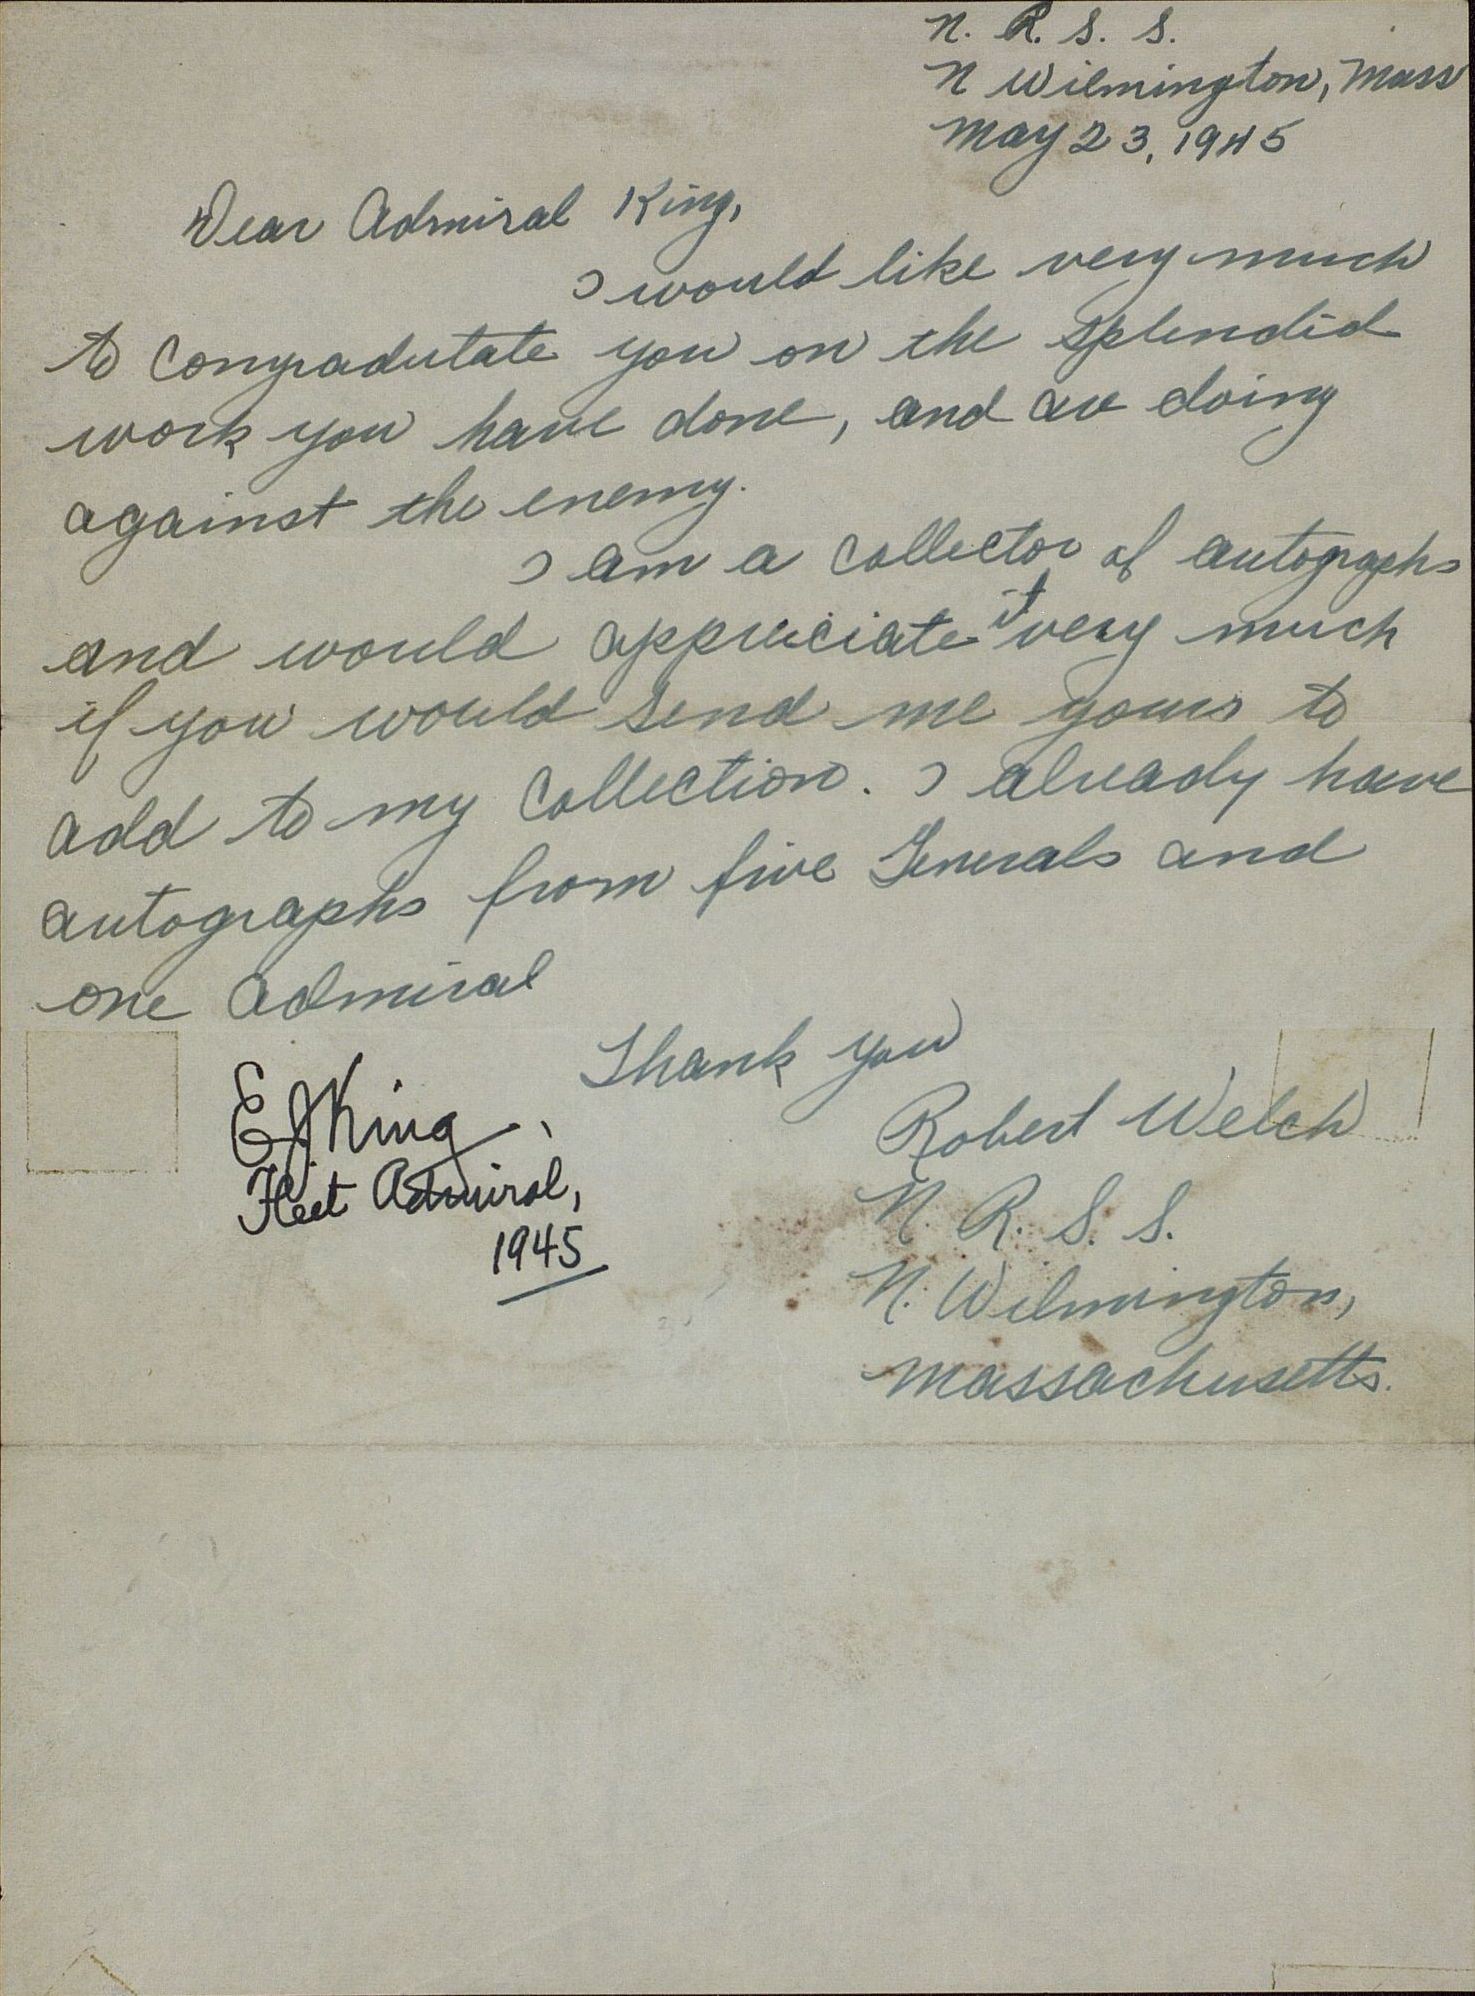 N. R. S. S.
N Wilmington, Mass
May 23, 1945
Dear Admiral King,
I would like very much
to congradutate you on the splendid
work you have done, and are doing
against the enemy.
I am a collector of autographs
and would appreciate it very much
if you would send me yours to
add to my collection. I already have
autographs from five Generals and
one Admiral
Thank you
Robert Welch
N. R. S. S.
N. Wilmington,
Massachusetts.
E J King
Fleet Admiral,
1945